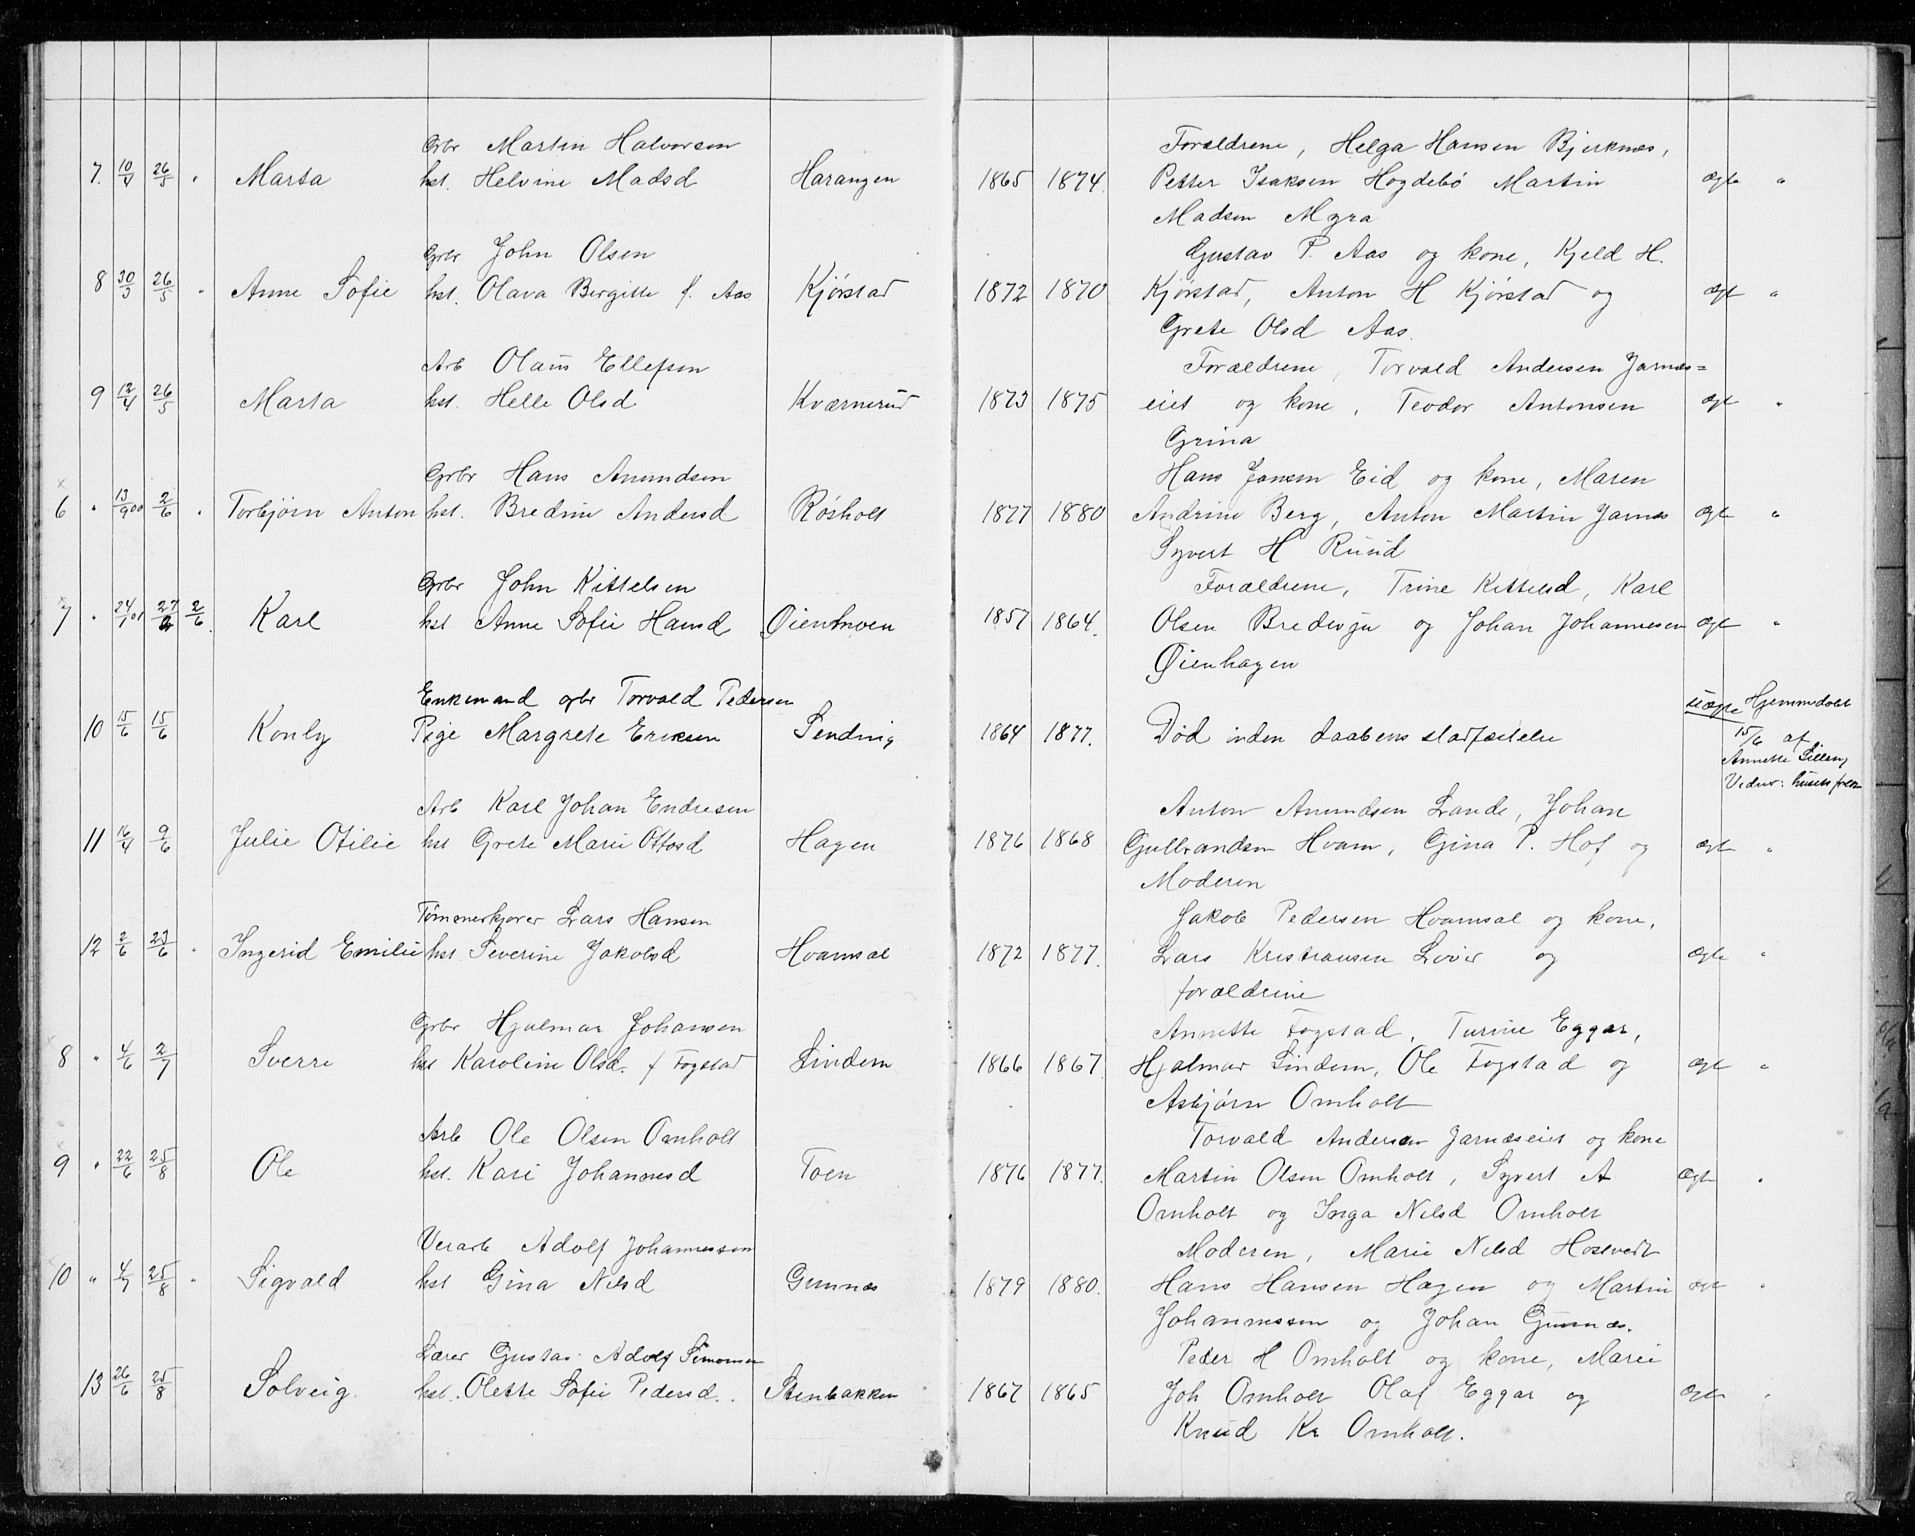 Grbr Martin Halvorsen
7. 10/4 26/5 " Marta hst. Helvine Madsd Harangen
Grbr John Olsen
8 30/3 26/5 " Anne Sofie hst. Olava Bergitte f. Aas Kjørstad
Arb Olaus Ellefsen
9 12/4 26/5 Marta hst. Helle Olsd Kværnerud
Grbr Hans Amundsen
6 " 13/9 00 2/6 " Torbjørn Anton hst. Bredine Andersd Røsholt
Grbr John Kittelsen
7 " 24/1 01 2/6 Karl hst Anne Sofie Hansd
Enkemand grbr Torvald Pedersen
10 15/6 15/6 Konly Pige Margrete Eriksen Sending
Arb Karl Johan Endresen
11 16/4 9/6 Julie Otilie hst Grete Marie Ottosd Hagen
Tømmerkjører Lars Hansen
12 2/6 23/6 " Ingerid Emilie hst. Severine Jakobsd Hvamsal
Grbr Hjalmar Johansen
8 " 4/6 2/7 Sverre hst Karoline Olsd. f Fogstad Lindem
Arb Ole Olsen Omholt
9 " 22/6 25/8 Ole hst. Kari Johannesd Toen
Verarb Adolf Johannessen
10 " 4/7 25/8 " Sigvald hst Gina Nilsd Gunnæs
Lærer Gustav Adolf Simonsen
13 26/6 25/8 Solveig. hst. Olette Sofie Pedersd. Stenbakken
Forældrene, Helga Hansen Bjerknæs,
1865 1874. Petter Isaksen Hogdebø Martin ægte "
Madsen Myra
Gustav P. Aas og kone, Kjeld H.
1872 1870 Kjørstad, Anton H Kjørstad og ægt "
Grete Olsd Aas.
Forældrene, Torvald Andersen Jarnæs=
1873 1875 eiet og kone, Teodor Antonsen ægt "
Grina
Hans Jansen Eid og kone, Maren
1877 1880 Andrine Berg, Anton Martin Jarnæs ægte "
Syvert H Ruud
Forældrene, Trine Kittelsd, Karl
1857 1864. Olsen Bredvju og Johan Johannesen ægt "
Øienhagen
1864 1877. Død inden daabens stadfæstelse uægte Hjemmedøbt
15/6 af
Annette
husets
Anton Amundsen Lande, Johan
1876 1868 Gulbrandsen Hvam, Gina P. Hof og ægt "
Moderen
Jakob Pedersen Hvamsal og kone,
1872 1877. Lars Kristiansen Lover og ægte "
forældrene
Annette Fogstad, Turine Eggar,
1866 1867. Hjalmar Lindem, Ole Fogstad og ægt "
Asbjørn Omholt
Torvald Andersen Jarnæseiet og kone
1876 1877. Martin Olsen Omholt, Syvert A ægt "
Omholt og Inga Nilsd Omholt
Moderen, Marie Nilsd Hoslvedt
1879 1880. Hans Hansen Hagen og Martin ægt "
Johannessen og Johan Gunnæs.
Peder H Omholt og kone, Marie
1867 1865 Joh Omholt Olaf Eggar og ægt "
Knud Kr Omholt.